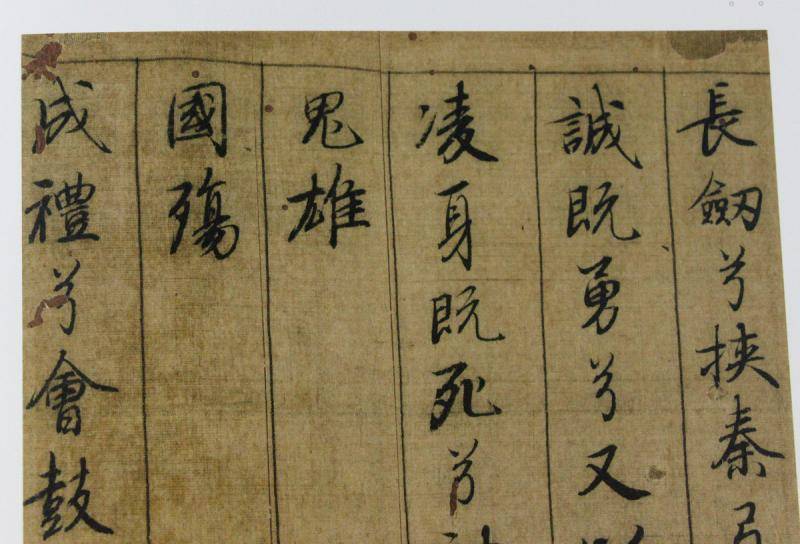 長劔兮挾秦弓
誠既勇兮又以
凌身既死兮神
鬼雄
國殤
成禮兮會鼓